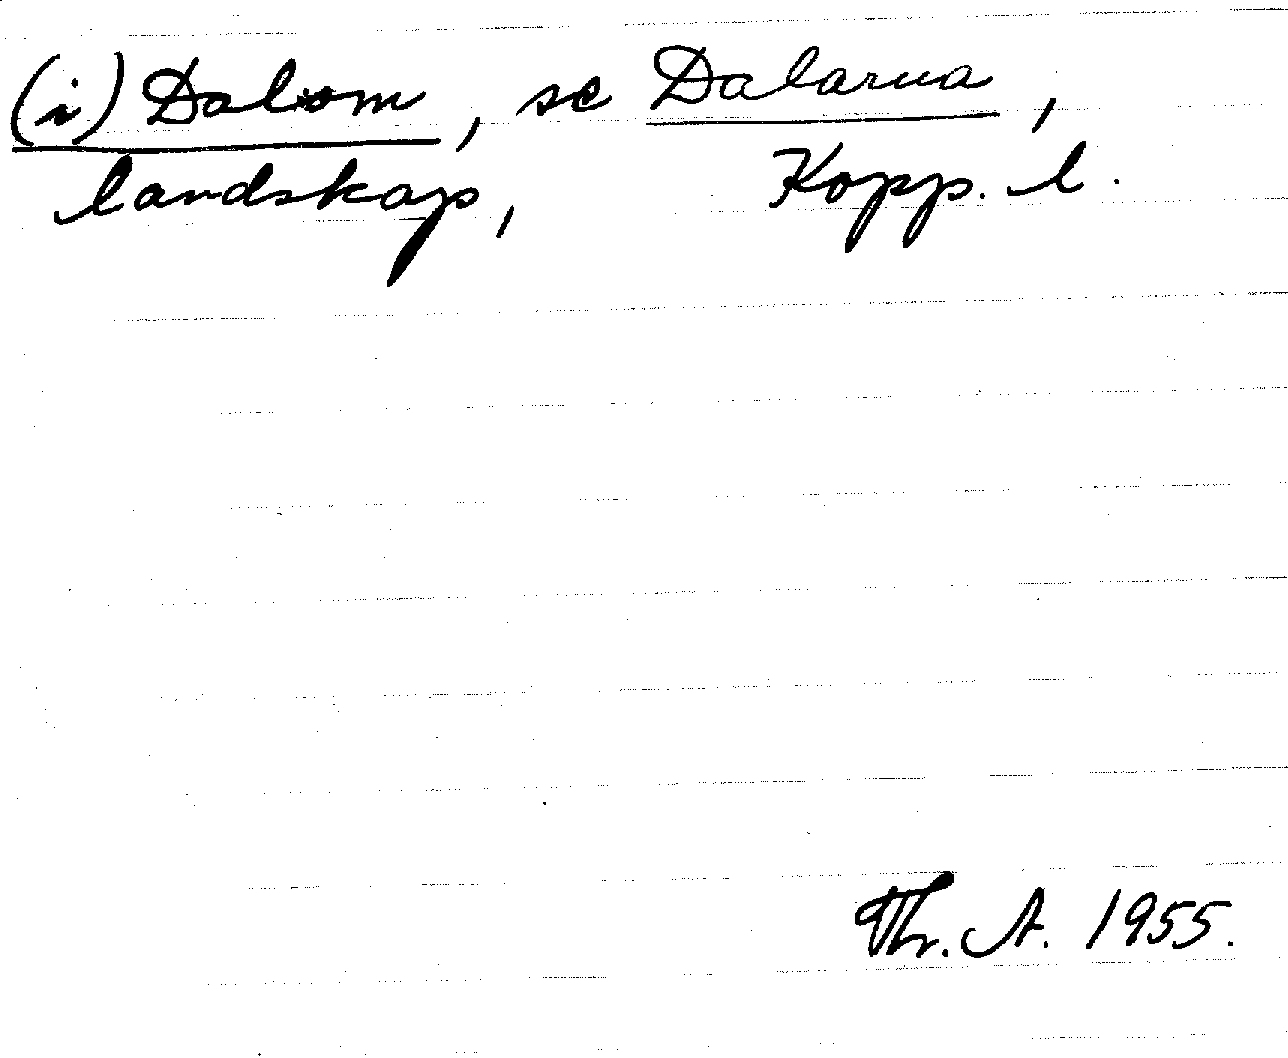 (i) Dalom, se Dalarna,
landskap, Kopp. l.
Thr. A. 1955.